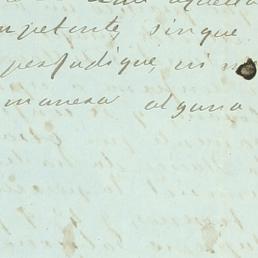 mpetente, sin que
perjudique, ni
manera alguna